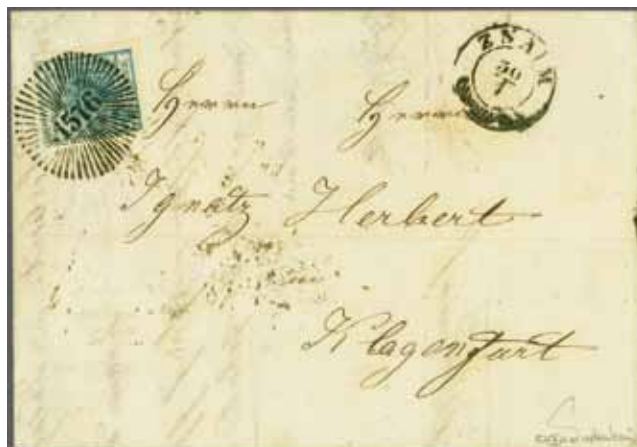 1576
ZNAIM
30
I
Herrn Herrn
Ignatz Herbert
Klagenfurt